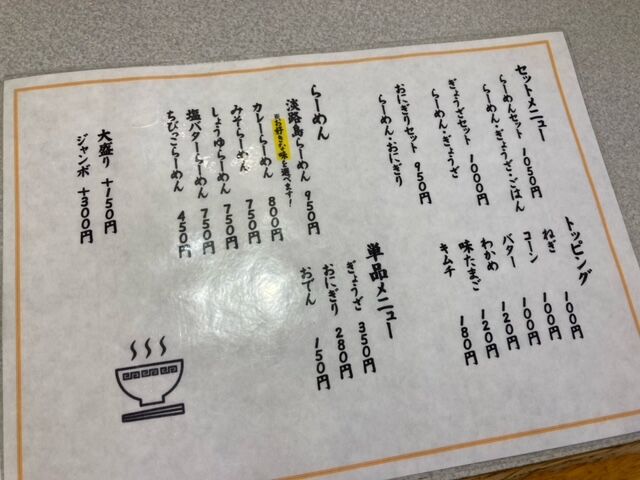 セットメニュー
らーめんセット 1050円
らーめん・ぎょうざ・ごはん
ぎょうざセット 1000円
らーめん・ぎょうざ
おにぎりセット 950円
らーめん・おにぎり
らーめん
淡路島らーめん 950円
※お好きな味を選べます!
カレーらーめん 800円
みそらーめん 750円
しょうゆらーめん 750円
塩バターらーめん 750円
ちびっこらーめん 450円
大盛り +150円
ジャンボ +300円
トッピング
ねぎ 100円
コーン 100円
バター 100円
わかめ 120円
味たまご 120円
キムチ 180円
単品メニュー
ぎょうざ 350円
おにぎり 280円
おでん 150円